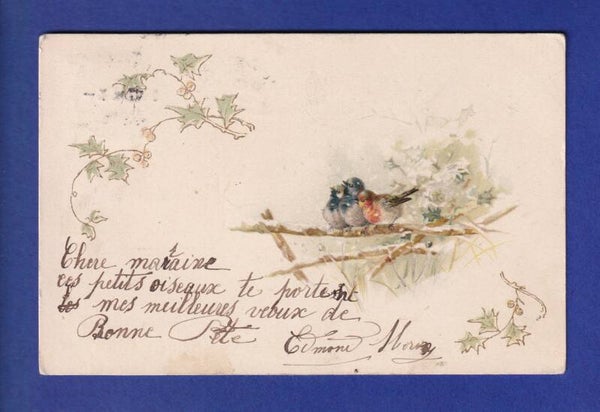 Chere maraine
ces petits oiseaux te portent
les mes meilleures vœux de
Bonne Fête Edmond